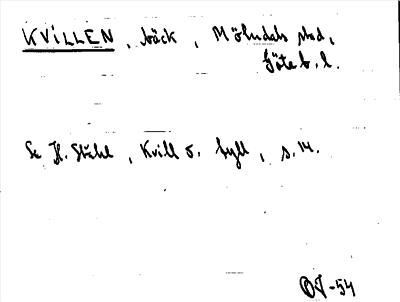 KVILLEN, bäck, Mölndals stad,
Göteb. l.
Se H. Ståhl, Kvill o. tyll, s. 14.
-54